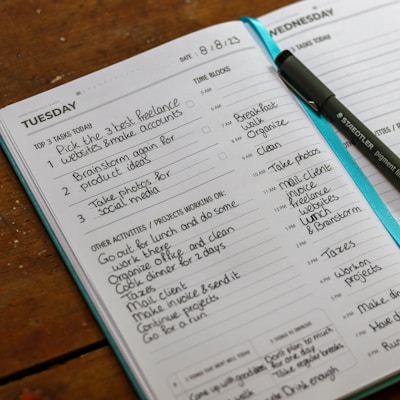 DATE: 8/8/23
TUESDAY
TOP 3 TASKS TODAY
1 Pick the 3 best freelance
websites & make accounts
2 Brainstorm again for
product ideas
3 Take photos for
social media
OTHER ACTIVITIES / PROJECTS WORKING ON:
Go out for lunch and do some
work there
Organize office and clean
Cook dinner for 2 days
Taxes
Mail client
Make invoice & send it
Continue projects
Go for a run
TIME BLOCKS
5 AM
6 AM
7 AM Breakfast
8 AM walk
Organize
9 AM clean
10 AM Take photos
11 AM mail client
invoice
12 PM freelance
websites
1 PM Lunch
2 PM & Brainstorm
3 PM Taxes
4 PM Work on
5 PM projects
6 PM Make din
7 PM Have di
8 PM Run
3 THINGS THAT WENT WELL TODAY
Come up with good ideas
3 THINGS TO IMPROVE
Don't plan too much
for one day
Take regular breaks
Drink enough
WEDNESDAY
TOP 3 TASKS TODAY
STAEDTLER
pigment